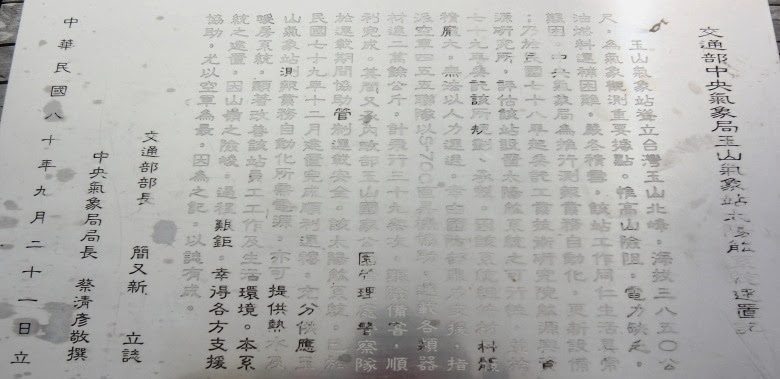 交通部中央氣象局玉山氣象站太陽能 建置
玉山氣象站聳立台灣玉山北峰,海拔三八五〇公
尺,為氣象觀測重要據點。惟高山險阻,電力缺乏,
油燃料運補困難,嚴冬積雪,該站工作同仁生活異常
艱困。中央氣象局為推行測報業務自動化,更新設備
,乃於民國七十八年起委託工業技術研究院能源與資
源研究所,評估該站設置太陽能系統之可
七十九年委託該所規劃、承製。因該系統
積龐大,無法以人力運送,
派空軍四五五聯隊以S-70C 直昇機協助,
材達二萬餘公斤,計飛行三十九架次, 備審,順
利完成。其間又承內政部玉山國家公園管理 警察隊
於運載期間協助管制運載安全。該太陽能系統, 於
民國七十九年十二月建置完成順利運轉,充分供應玉
山氣象站測報業務自動化所需電源,亦可提供熱水及
暖房系統,顯著改善該站員工工作及生活環境。本系
統之建置,因山嶺之險峻,過程艱鉅,幸得各方支援
協助,尤以空軍為最,因為之記,以誌有成。
交通部部長 簡又新 立誌
中央氣象局局長 蔡清彥敬撰
中華民國八十年九月二十一日立